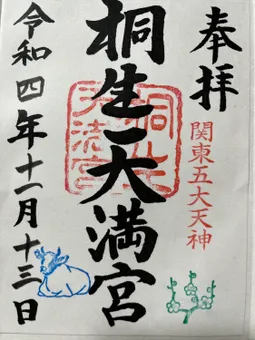 奉拝
関東五大天神
桐生天満宮
桐生天満宮
令和四年十一月十三日